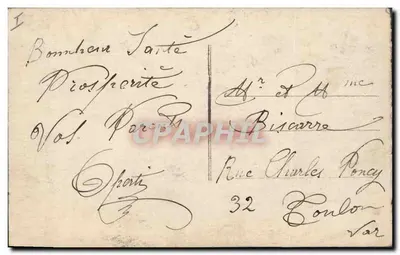 I
Bonnheur Santé
Prosperité
Vos Parents
Mr et Mme
Biscarre
Rue Charles Poncy
32
Toulon
Var
CPAPHIL